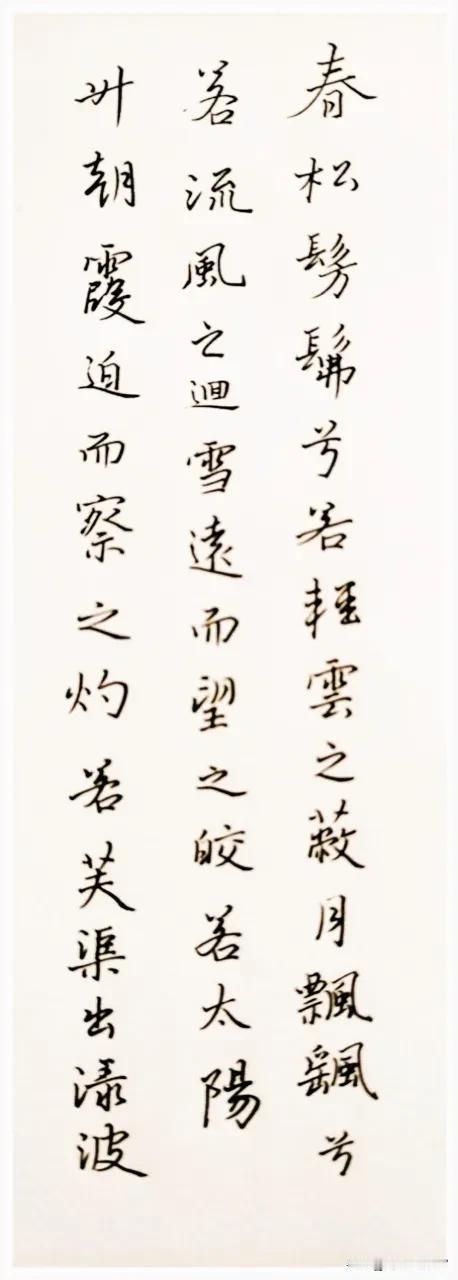 春松髣髴兮若輕雲之蔽月飄飖兮
若流風之迴雪遠而望之皎若太陽
升朝霞迫而察之灼若芙渠出渌波